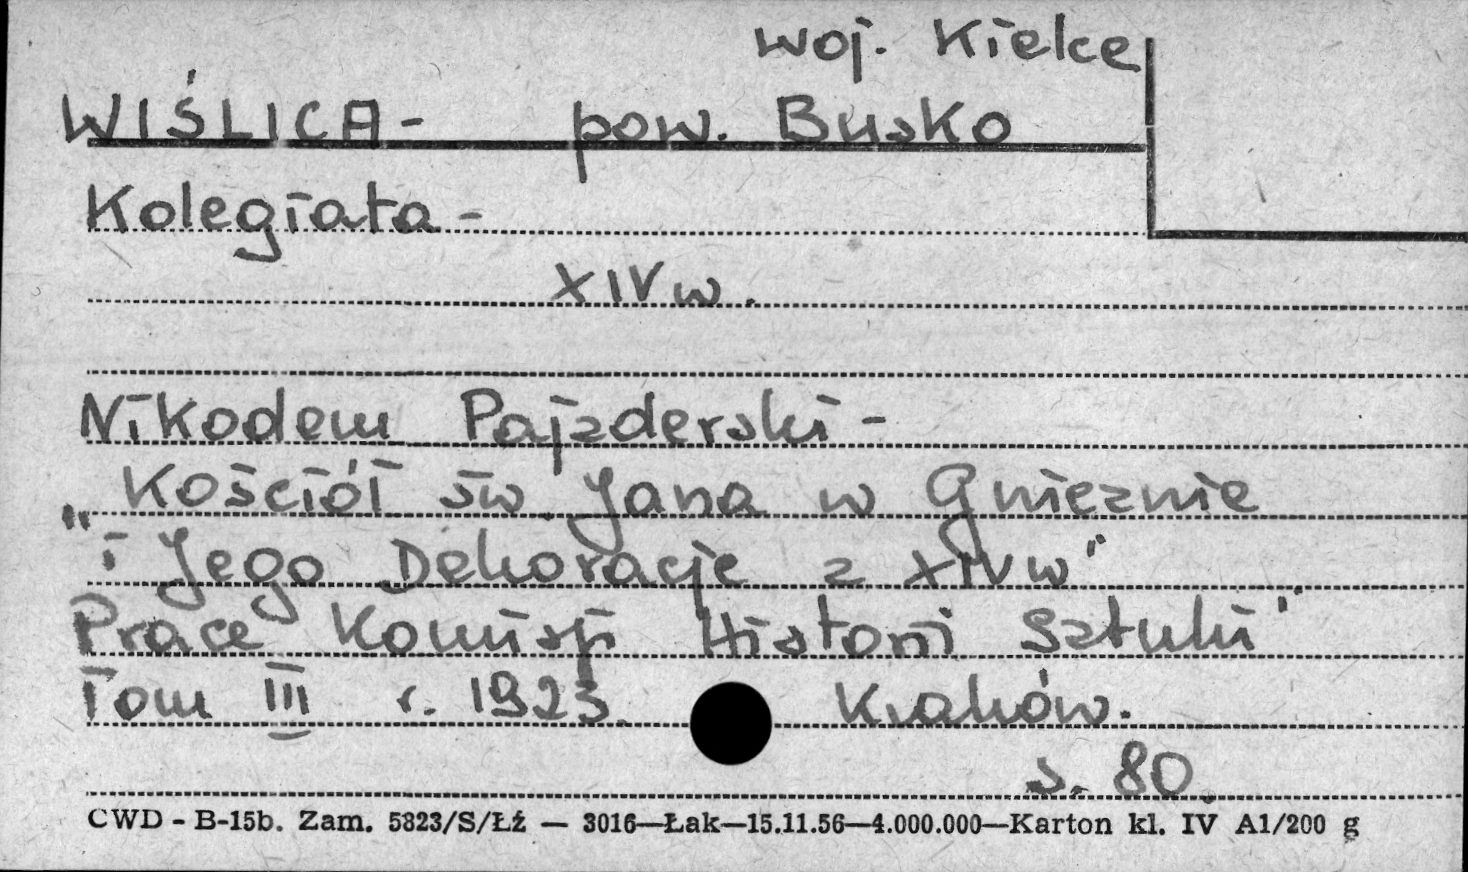 woj. Kielce
WIŚLICA - pow. Busko
Kolegiata -
XIV w.
Nikodem Pajzderski -
"Kościół św. Jana w Gnieznie
i Jego Dekoracje z XIV w"
Prace Komisji Historii Sztuki"
Tom III r. 1923. Kraków.
s. 80.
CWD - B-15b. Zam. 5823/S/Łź — 3016—Łak—15.11.56—4.000.000—Karton kl. IV A1/200 g